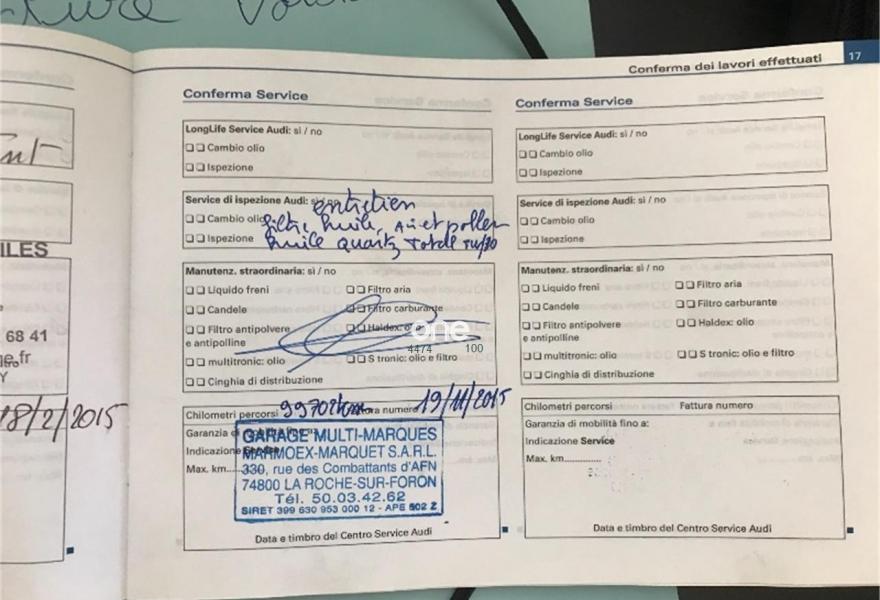 17
Conferma dei lavori effettuati
ILES
68 41
18/2/2015
Conferma Service
LongLife Service Audi: sì / no
Cambio olio
Ispezione
Service di ispezione Audi: sì / no
entretien
Cambio olio
filtre huile, Air et pollen
Ispezione
huile quartz Total 5W/30
Manutenz. straordinaria: sì / no
Liquido freni
Filtro aria
Candele
Filtro carburante
Filtro antipolvere
e antipolline
Haldex: olio
one
4474 100
multitronic: olio
S tronic: olio e filtro
Cinghia di distribuzione
Chilometri percorsi 99702km Fattura numero 19/11/2015
Garanzia di mobilità fino a:
Indicazione Service
Max. km
GARAGE MULTI-MARQUES
MARMOEX-MARQUET S.A.R.L.
330, rue des Combattants d'AFN
74800 LA ROCHE-SUR-FORON
Tél. 50.03.42.62
SIRET 399 630 953 000 12 - APE 502 Z
Data e timbro del Centro Service Audi
Conferma Service
LongLife Service Audi: sì / no
Cambio olio
Ispezione
Service di ispezione Audi: sì / no
Cambio olio
Ispezione
Manutenz. straordinaria: sì / no
Liquido freni
Filtro aria
Candele
Filtro carburante
Filtro antipolvere
e antipolline
Haldex: olio
multitronic: olio
S tronic: olio e filtro
Cinghia di distribuzione
Chilometri percorsi Fattura numero
Garanzia di mobilità fino a:
Indicazione Service
Max. km
Data e timbro del Centro Service Audi